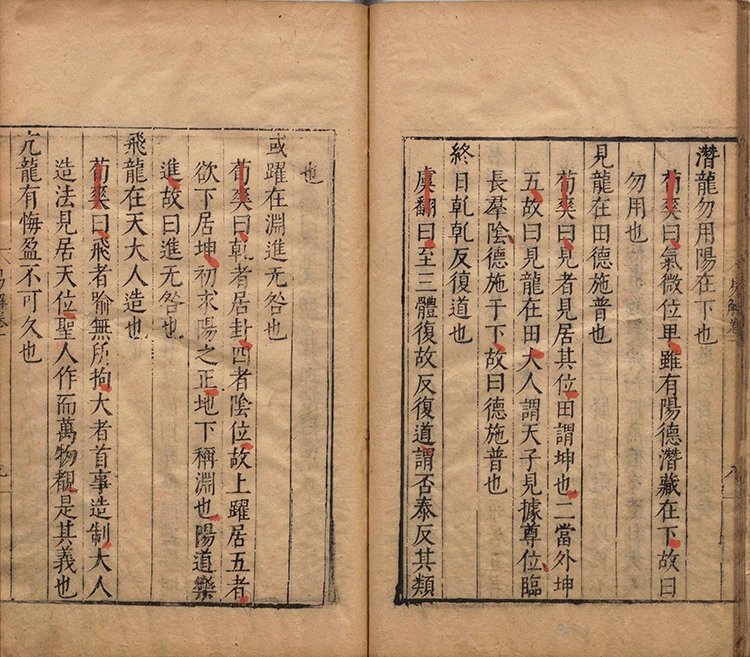 潛龍勿用陽在下也
荀爽曰氣微位卑雖有陽德潛藏在下故曰
勿用也
見龍在田德施普也
荀爽曰見者見居其位田謂坤也二當外坤
五故曰見龍在田大人謂天子見據尊位臨
長羣陰德施于下故曰德施普也
終日乾乾反復道也
虞翻曰至三體復故反復道謂否泰反其類
也
或躍在淵進无咎也
荀爽曰乾者居卦四者陰位故上躍居五者
欲下居坤初求陽之正地下稱淵也陽道樂
進故曰進无咎也
飛龍在天大人造也
荀爽曰飛者喻無所拘大者首事造制大人
造法見居天位聖人作而萬物覩是其義也
亢龍有悔盈不可久也